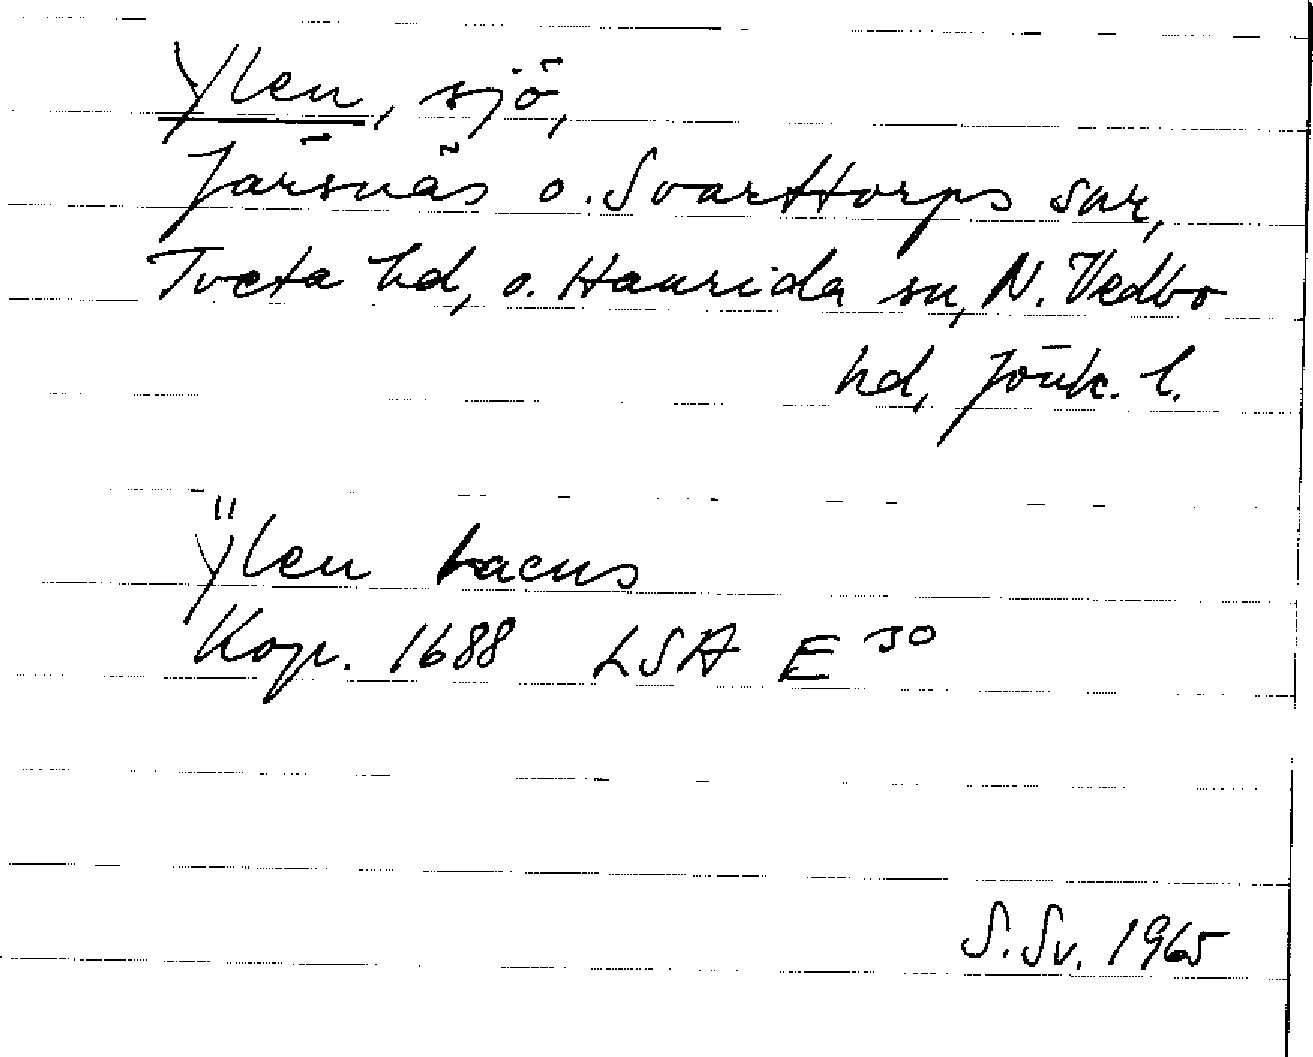 Ylen, sjö,
Järsnäs o. Svarttorps snr,
Tveta hd, o. Haurida sn, N. Vedbo
hd, Jönk. l.
Ÿlen Lacus
Kop. 1688 LSA E 30
S. Sv. 1965